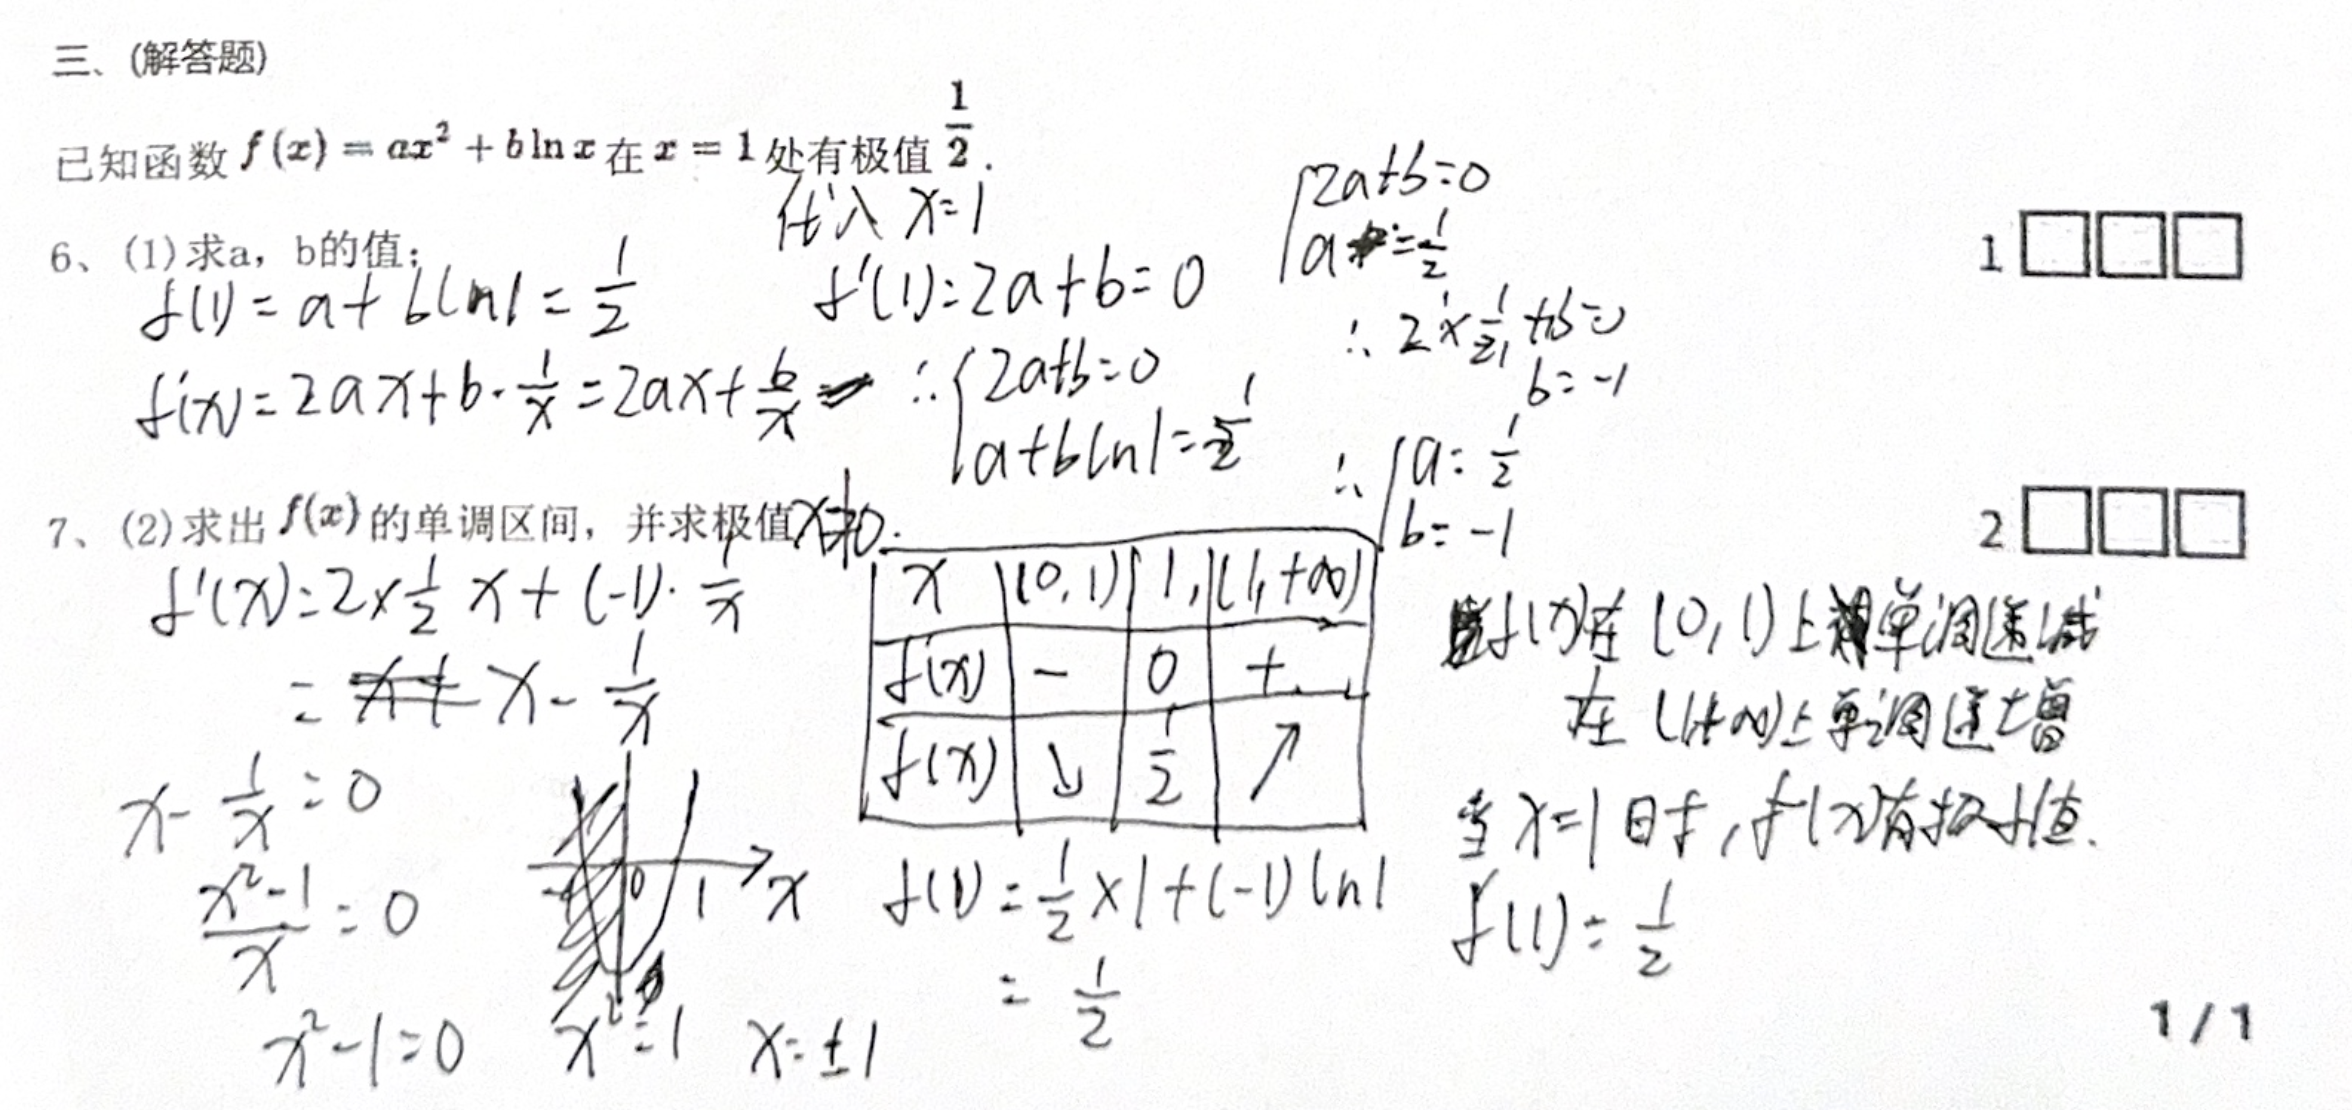 三、(解答题)
已知函数 f(x) = ax² + b ln x 在 x = 1 处有极值 1/2.
6、(1)求a，b的值；
代入 x=1
f(1) = a + b ln1 = 1/2
f'(x) = 2ax + b·1/x = 2ax + b/x
f'(1) = 2a + b = 0
∴ { 2a+b=0
a+b ln1 = 1/2
{ 2a+b=0
a = 1/2
∴ 2×1/2+b=0
b=-1
∴ { a = 1/2
b = -1
1
7、(2)求出 f(x) 的单调区间，并求极值
x≠0.
2
f'(x) = 2×1/2 x + (-1)·1/x
= x - 1/x
x - 1/x = 0
(x²-1)/x = 0
x²-1=0 x²=1 x=±1
-1 0 1 x
x (0,1) 1 (1,+∞)
f'(x) - 0 +
f(x) ↘ 1/2 ↗
f(1) = 1/2×1+(-1)ln1
= 1/2
f(x)在 (0,1)上单调递减
在 (1,+∞)上单调递增
当 x=1时，f(x)有极小值.
f(1) = 1/2
1/1